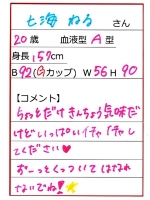 七海 ねる さん
20歳 血液型 A型
身長 157cm
B 92(Gカップ) W 56 H 90
【コメント】
ちょっとだけきんちょう気味だ
けどいっぱいイチャイチャして
ください♥
ずーっとくっついてはなれ
ないでね!